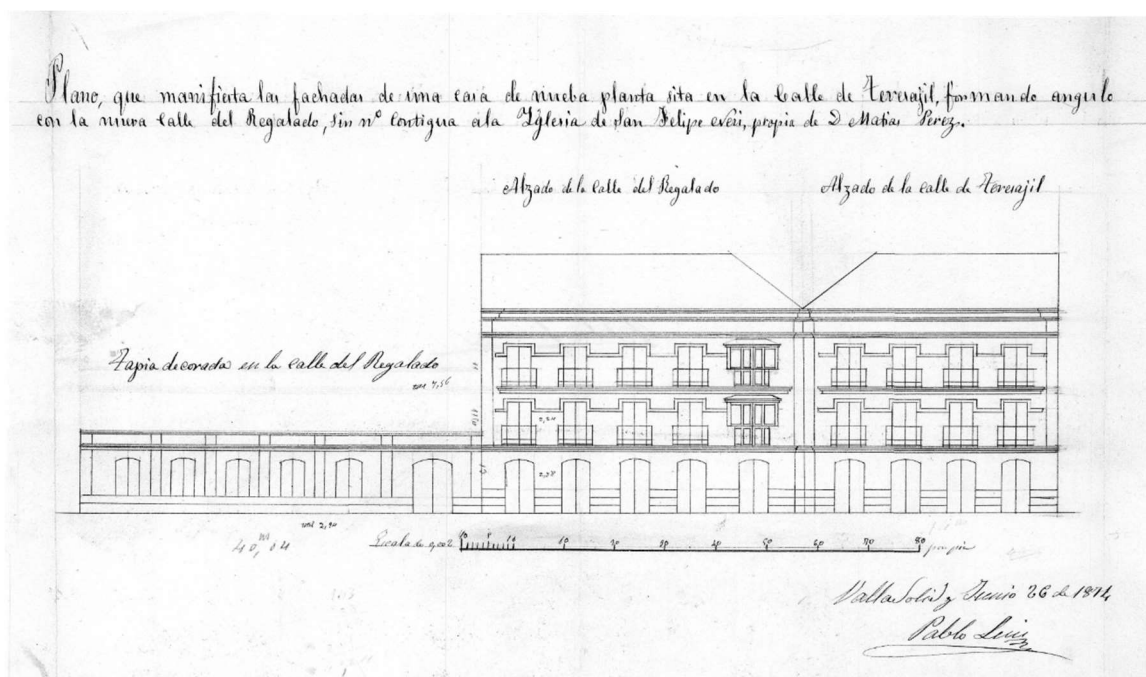 Plano, que manifiesta las fachadas de una casa de nueba planta sita en la Calle de Teresajil, formando angulo
con la nueva Calle del Regalado, sin nº contigua á la Yglesia de San Felipe Neri, propia de D Matias Perez.
Alzado de la Calle del Regalado
Alzado de la calle de Teresajil
Tapia decorada en la calle del Regalado
40,04
Escala de 0,002
10 10 20 30 40 50 60 70 80 por pie
Valladolid y Junio 26 de 1874
Pablo